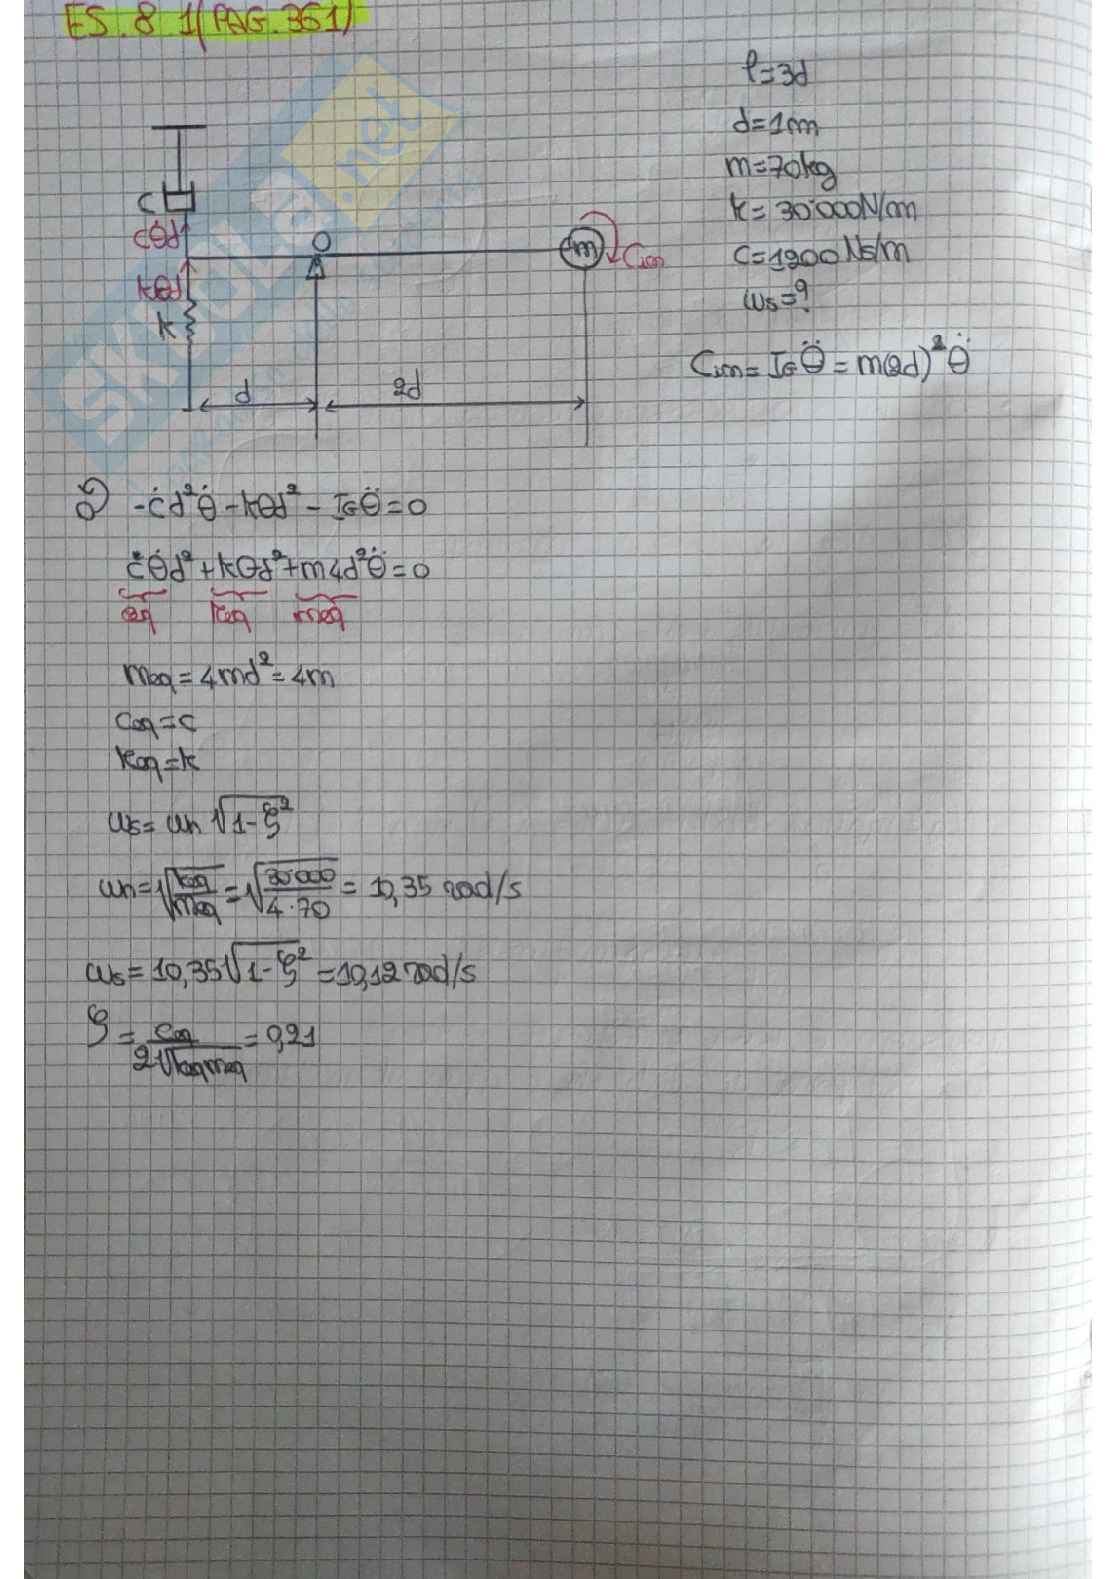 ES. 8.1 (PAG. 361)
l=3d
d=1m
m=70kg
k= 30'000N/m
c=1200Ns/m
ωs=?
Cim= IG θ̈ = m(2d)² θ̈
c
cθ̇d
kθd
k
O
m
Cim
d
2d
SKUOLA.net
O) -cd²θ̇ - kθd² - IGθ̈ = 0
cθ̇d² + kθd² + m4d²θ̈ = 0
ceq keq meq
meq = 4md² = 4m
ceq = c
keq = k
ωs = ωn √1-ξ²
ωn = √keq/meq = √30'000/4·70 = 10,35 rad/s
ωs = 10,35 √1-ξ² = 10,12 rad/s
ξ = ceq/2√keq meq = 0,21